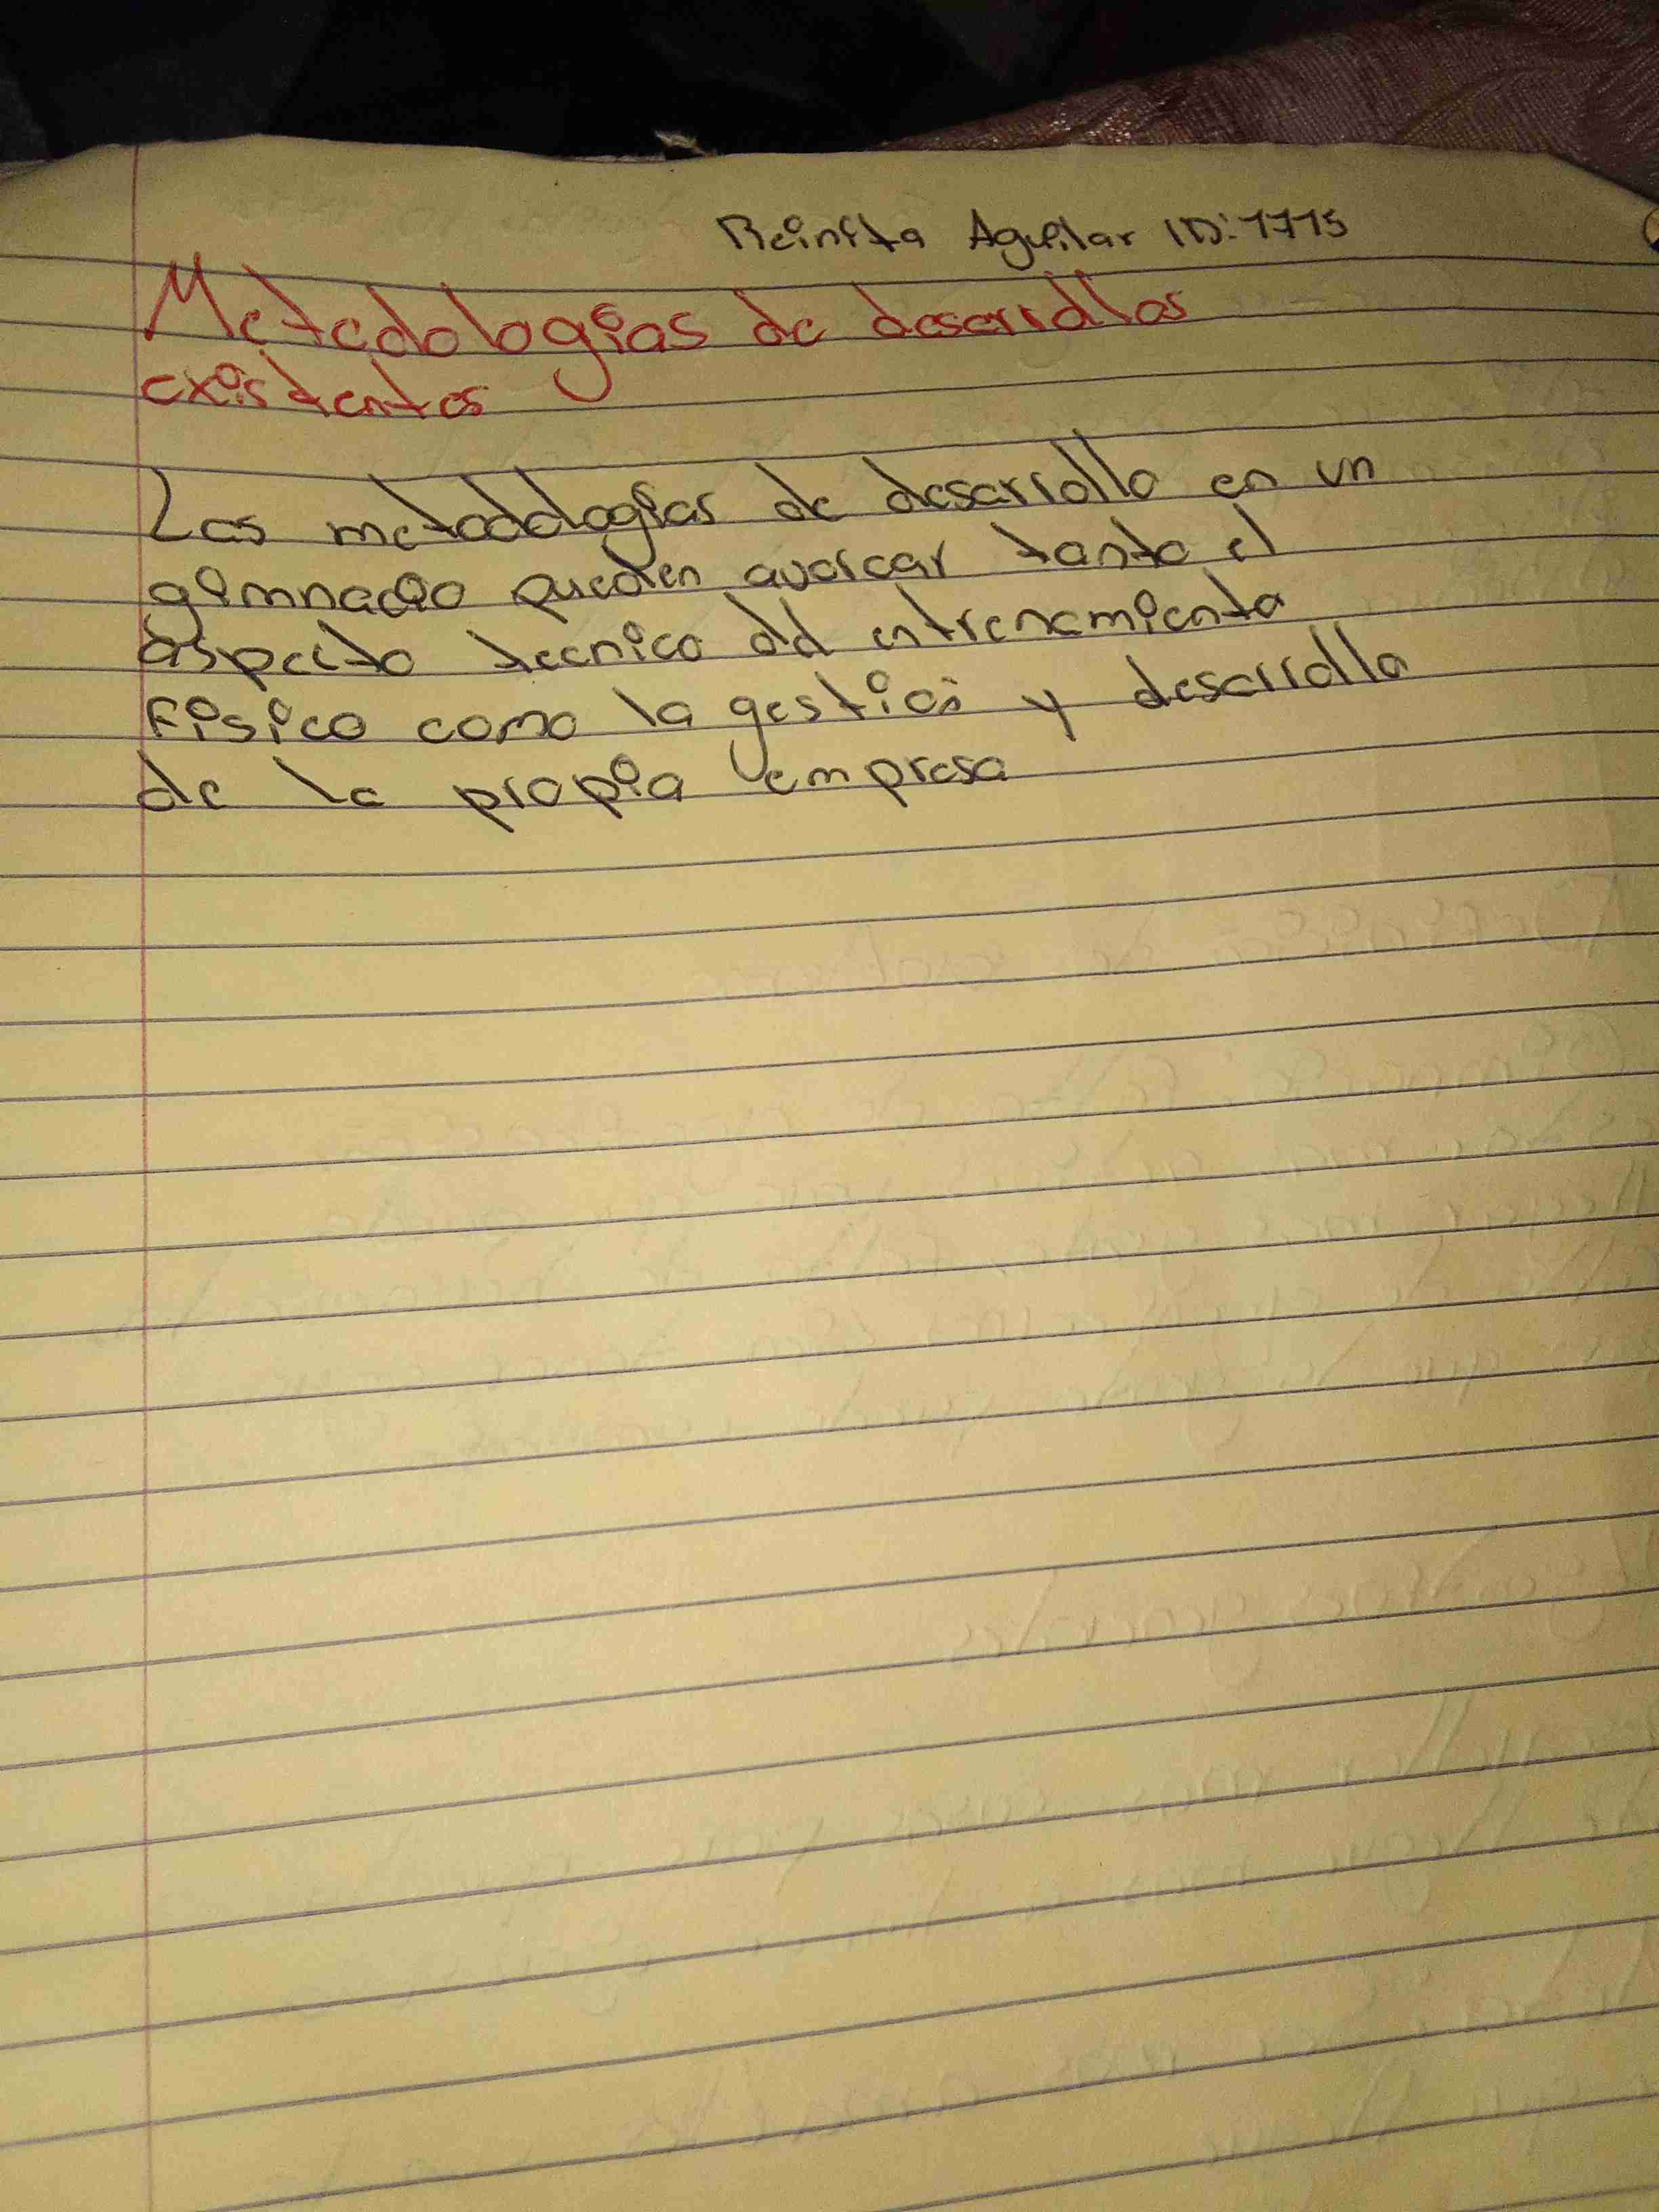 Reinita Aguilar ID: 1775
Metodologias de desarrollos
existentes
Las metodologias de desarrollo en un
gimnacio pueden avarcar tanto el
aspecto tecnico del entrenamiento
Fisico como la gestion y desarrollo
de la propia empresa